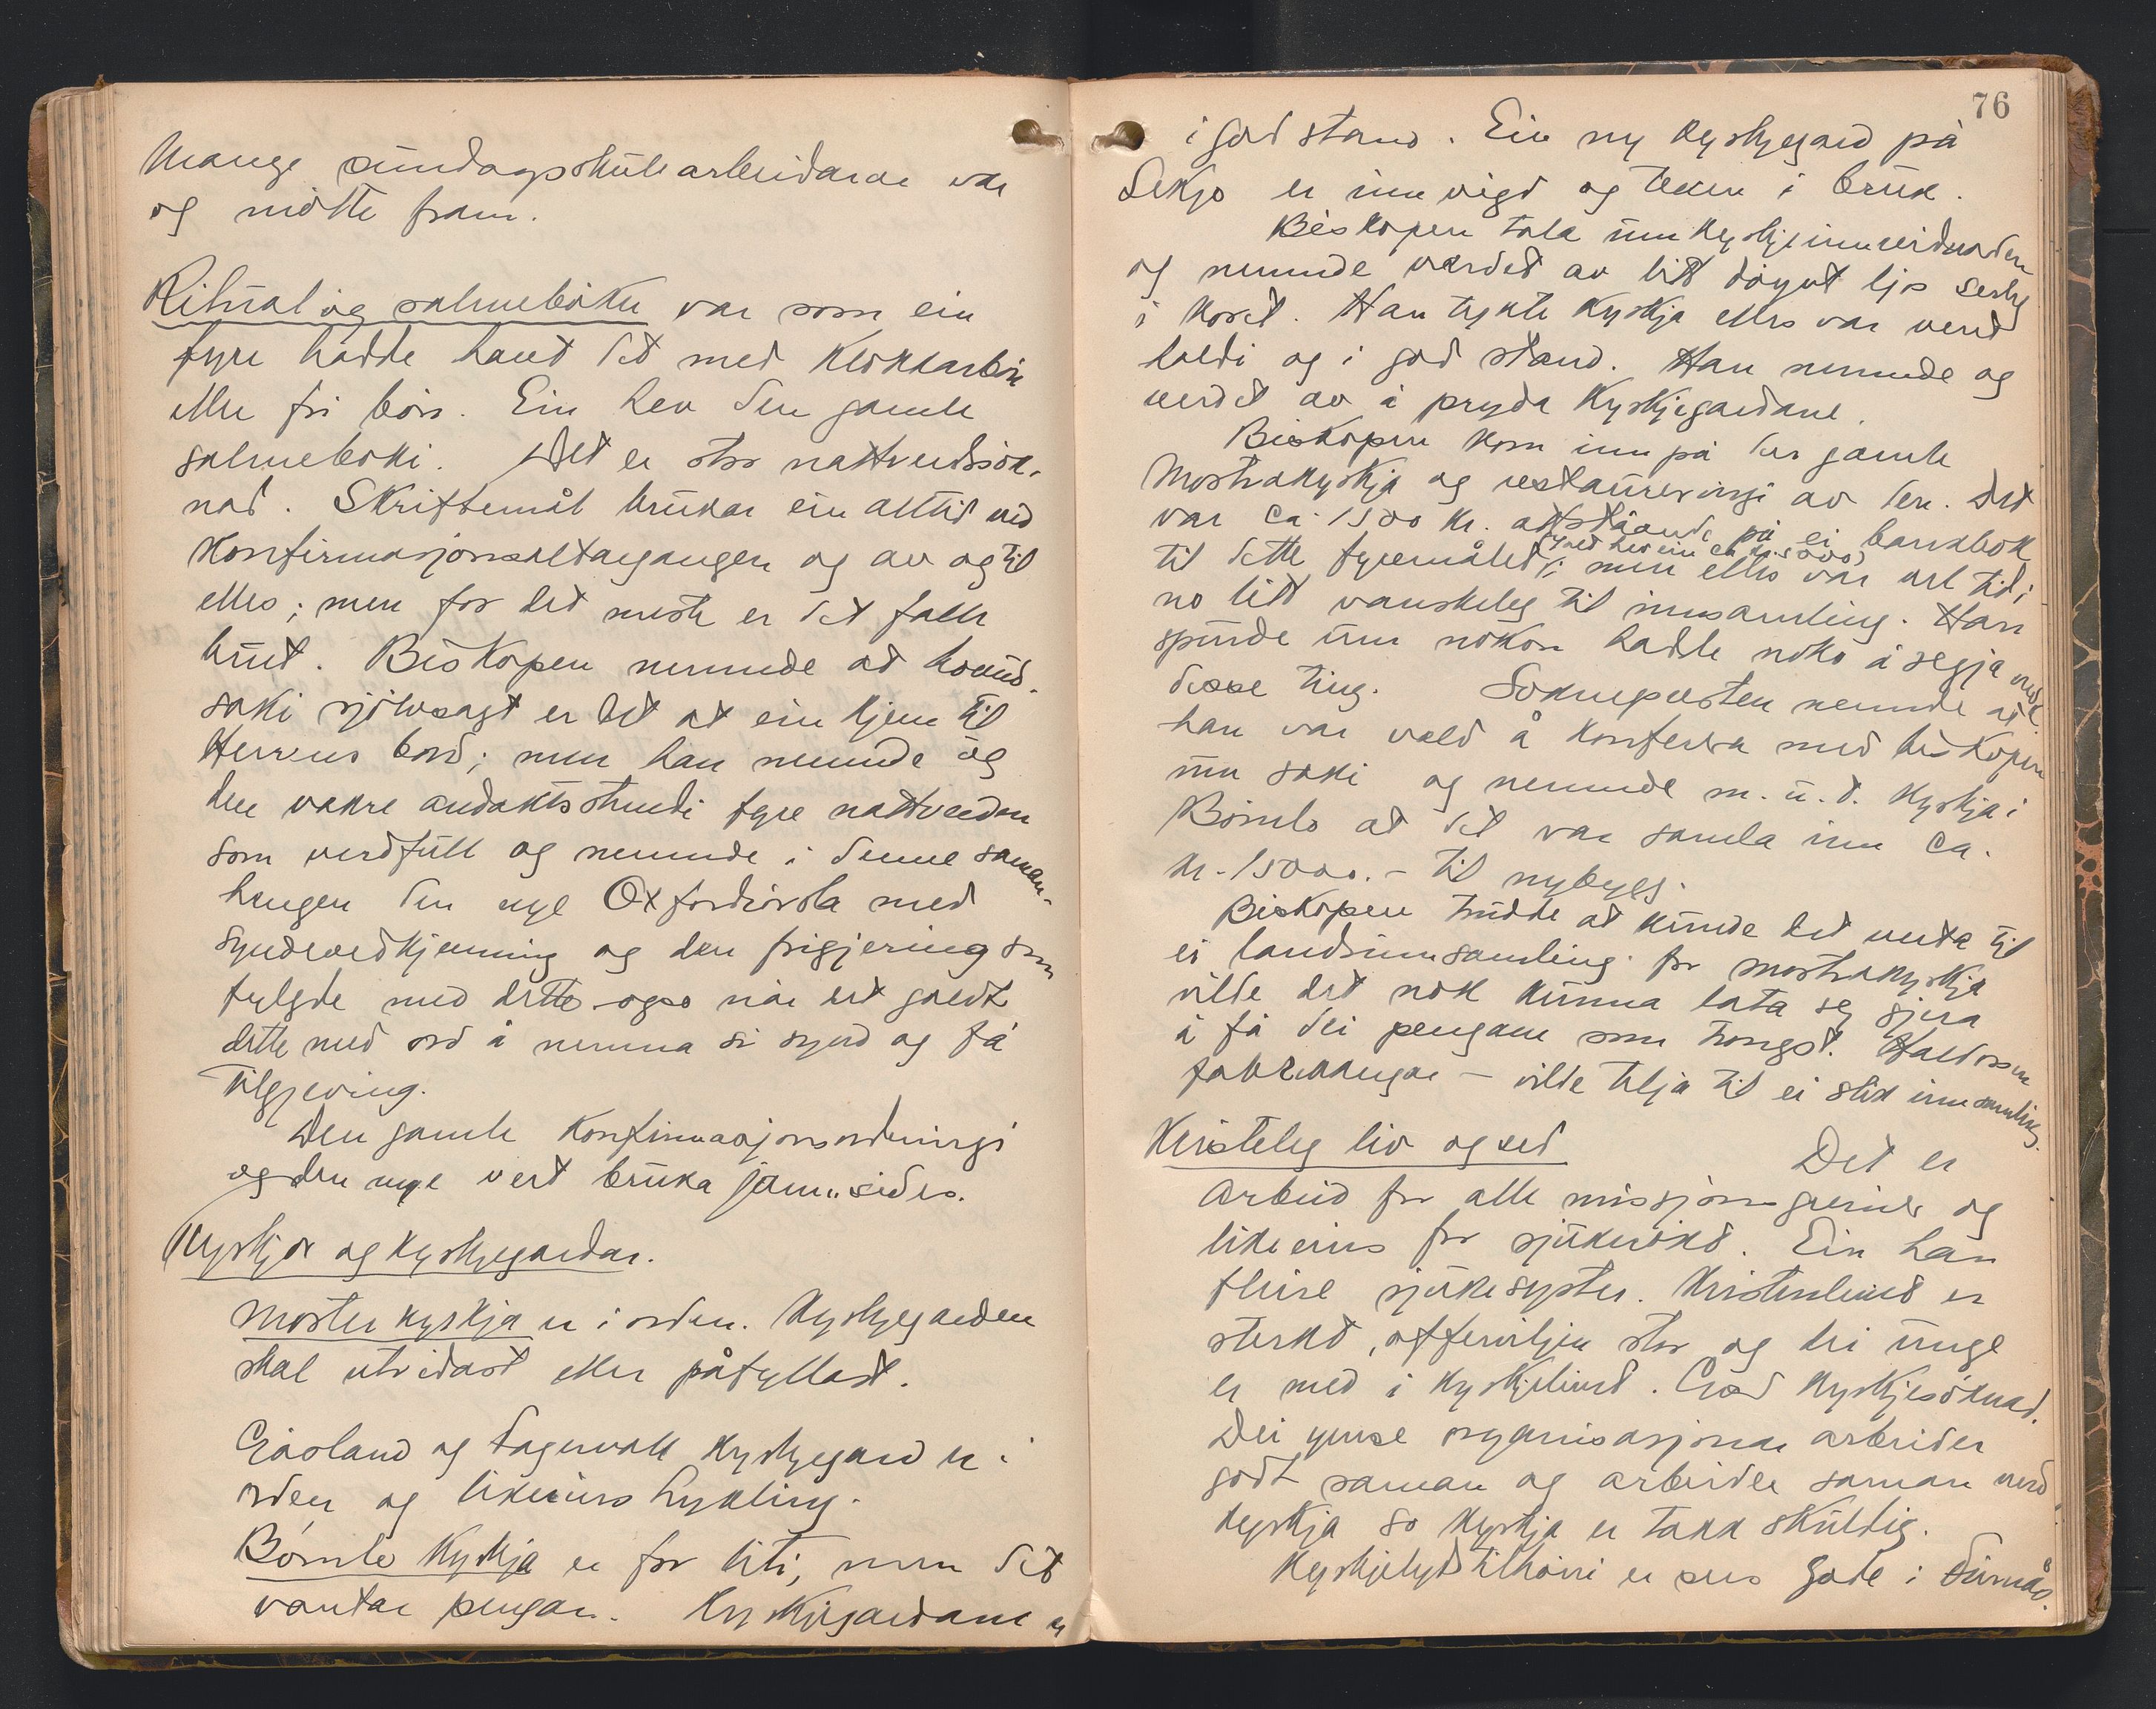 Mange sundagsskulearbeidarar var
og møtte fram.
Ritual og salmebøker var som ein
fyre hadde havt det med klokkarbøn
eller fri bøn. Ein hev den gamle
salmeboki. Det er stor nattverdsøk-
nad. Skriftemål brukar ein alltid ved
konfirmasjonsaltargangen og av og til
elles; men for det meste er det falle
burt. Biskopen nemnde at hovud-
saki sjølvsagt er det at ein kjem til
Herrens bord; men han nemnde og
den vakre andaktsstundi fyre nattverden
som verdfull og nemnde i denne saman-
hengen den nye Oxfordrørsla med
syndevedkjenning og den frigjering som
fylgde med dette også når det galdt
dette med ord å nemna si synd og få
tilgjeving.
Den gamle konfirmasjonsordningi
og den nye vert bruka jamsides.
Kyrkjor og kyrkjegardar.
Moster kyrkja er i orden. Kyrkjegarden
skal utvidast eller påfyllast.
Gåsland og Fagervoll kyrkjegard er i
orden og likeeins Lykling.
Bømlo kyrkja er for liti, men det
vantar pengar. Kyrkjegardane er
76
i god stand. Ein ny kyrkjegard på
Sekse er innvigd og teken i bruk.
Biskopen tala um kyrkjeinnreidnaden
og nemnde verdet av litt døyvt ljos serleg
i koret. Han tykte kyrkja elles var vend
haldi og i god stand. Han nemnde og
verdet av å pryda kyrkjegardane.
Biskopen kom inn på den gamle
Mostrakyrkja og restaureringi av den. Det
var ca. 1500 kr. attståande på ei bankbok
til dette fyremålet; men elles var det tidi
no litt vanskeleg til innsamling. Han
spurde um nokon hadde noko å segja ved
desse ting. Soknepresten nemnde at
han var vald å konferera med biskopen
um saki og nemnde m.u.t. kyrkja i
Bømlo at det var samla inn ca.
kr. 15000.- til nybygg.
Biskopen trudde at kunde det verta til
ei landsinnsamling for Mostrakyrkja
vilde det nok kunna lata seg gjera
å få dei pengane som trongst. Haldorsen
- vilde tilja til ei slik innsamling.
Kristeleg liv og sed
Det er
arbeid for alle missjonsgreiner og
likeeins for sjukerøkt. Ein har
fleire sjukesyster. Kristenlivet er
sterkt, offerviljen stor og dei unge
er med i kyrkjelivet. God kyrkjesøknad.
Dei ymse organisasjonar arbeider
godt saman og arbeider saman med
kyrkja so kyrkja er takk skuldig.
Kyrkjelydstilhøvi er sers gode i